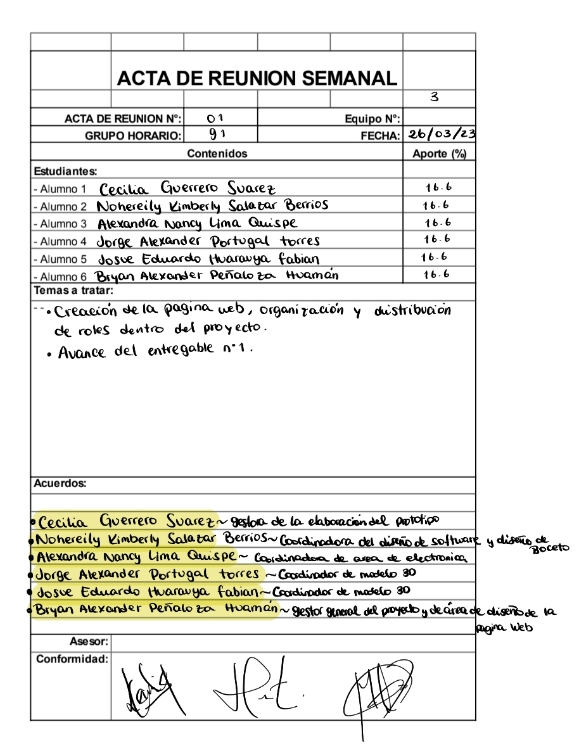 ACTA DE REUNION SEMANAL
3
ACTA DE REUNION Nº: 01 Equipo Nº:
GRUPO HORARIO: 91 FECHA: 26/03/23
Contenidos Aporte (%)
Estudiantes:
- Alumno 1 Cecilia Guerrero Suarez 16.6
- Alumno 2 Nohereily Kimberly Salazar Berrios 16.6
- Alumno 3 Alexandra Nancy Lima Quispe 16.6
- Alumno 4 Jorge Alexander Portugal torres 16.6
- Alumno 5 Josue Eduardo Huarauya fabian 16.6
- Alumno 6 Bryan Alexander Peñaloza Huamán 16.6
Temas a tratar:
-- • Creación de la pagina web, organización y distribución
de roles dentro del proyecto.
• Avance del entregable n°1.
Acuerdos:
• Cecilia Guerrero Suarez ~ gestora de la elaboración del prototipo
• Nohereily Kimberly Salazar Berrios ~ Coordinadora del diseño de software y diseño de
boceto
• Alexandra Nancy Lima Quispe ~ Coordinadora de area de electronica
• Jorge Alexander Portugal torres ~ Coordinador de modelo 3D
• Josue Eduardo Huarauya fabian ~ Coordinador de modelo 3D
• Bryan Alexander Peñaloza Huamán ~ gestor general del proyecto y de área de diseño de la
pagina web
Asesor:
Conformidad: